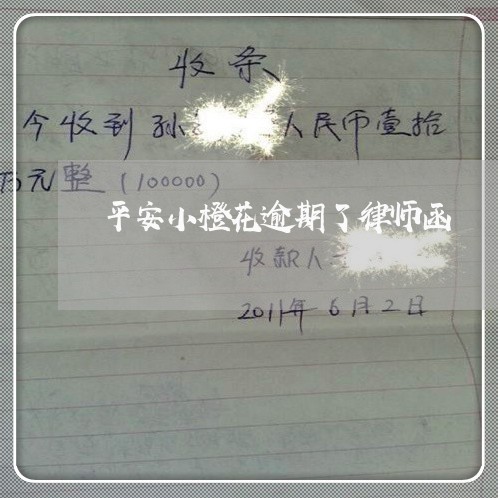 收条
今收到孙 人民币壹拾
万元整(100000)
平安小橙花逾期了律师函
收款人
2011年6月2日